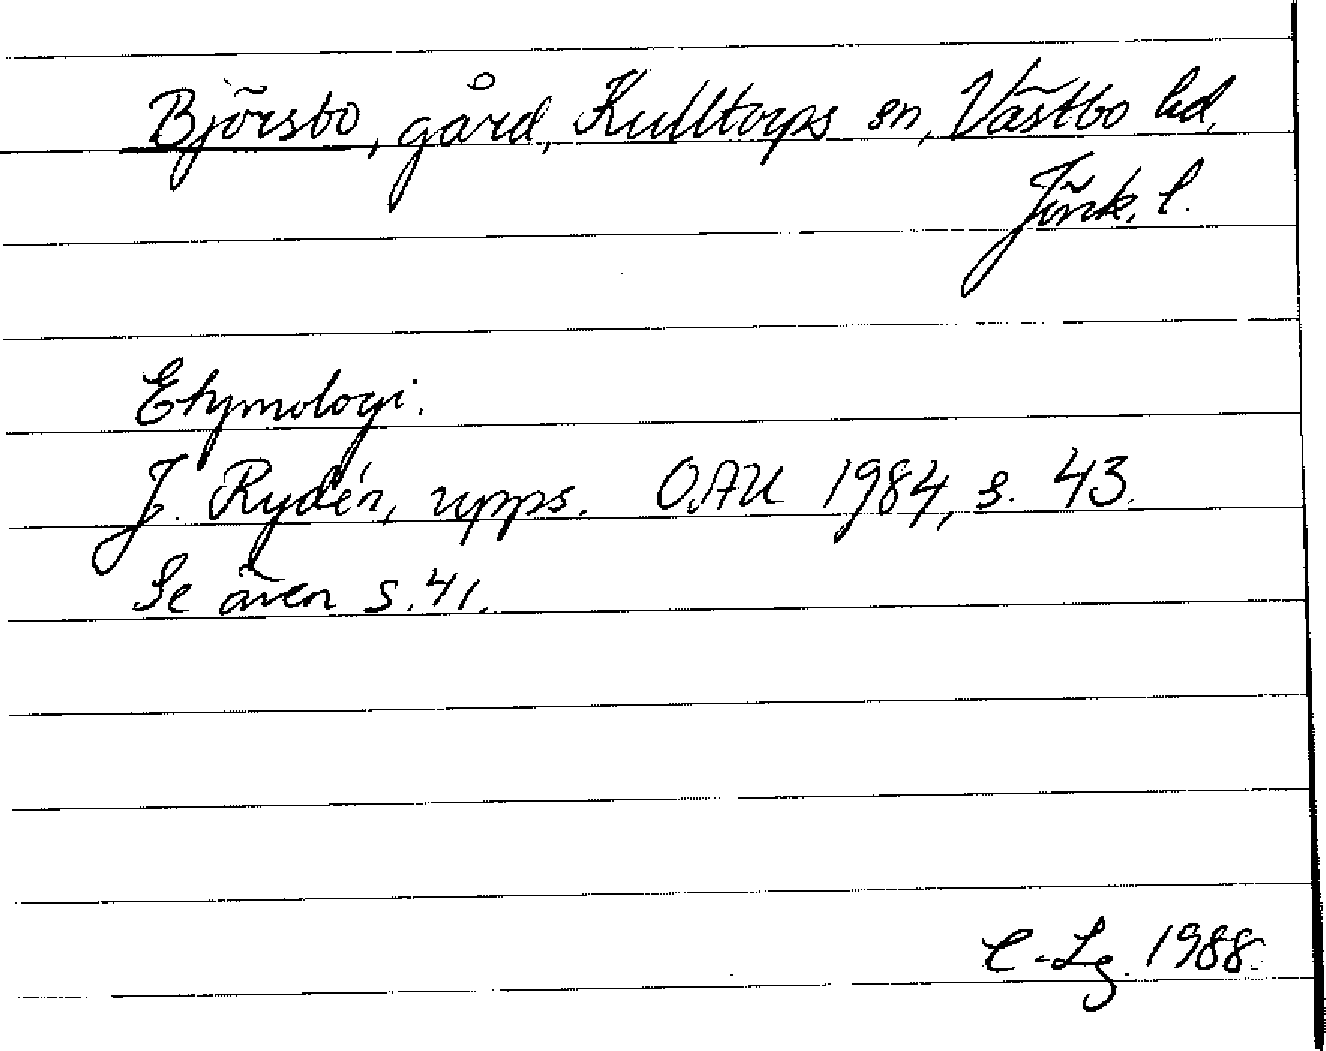 Björsbo, gård, Kulltorps sn, Västbo hd,
Jönk. l.
Etymologi.
J. Rydén, upps. OAU 1984, s. 43.
Se även s. 41.
C-Lg. 1988.